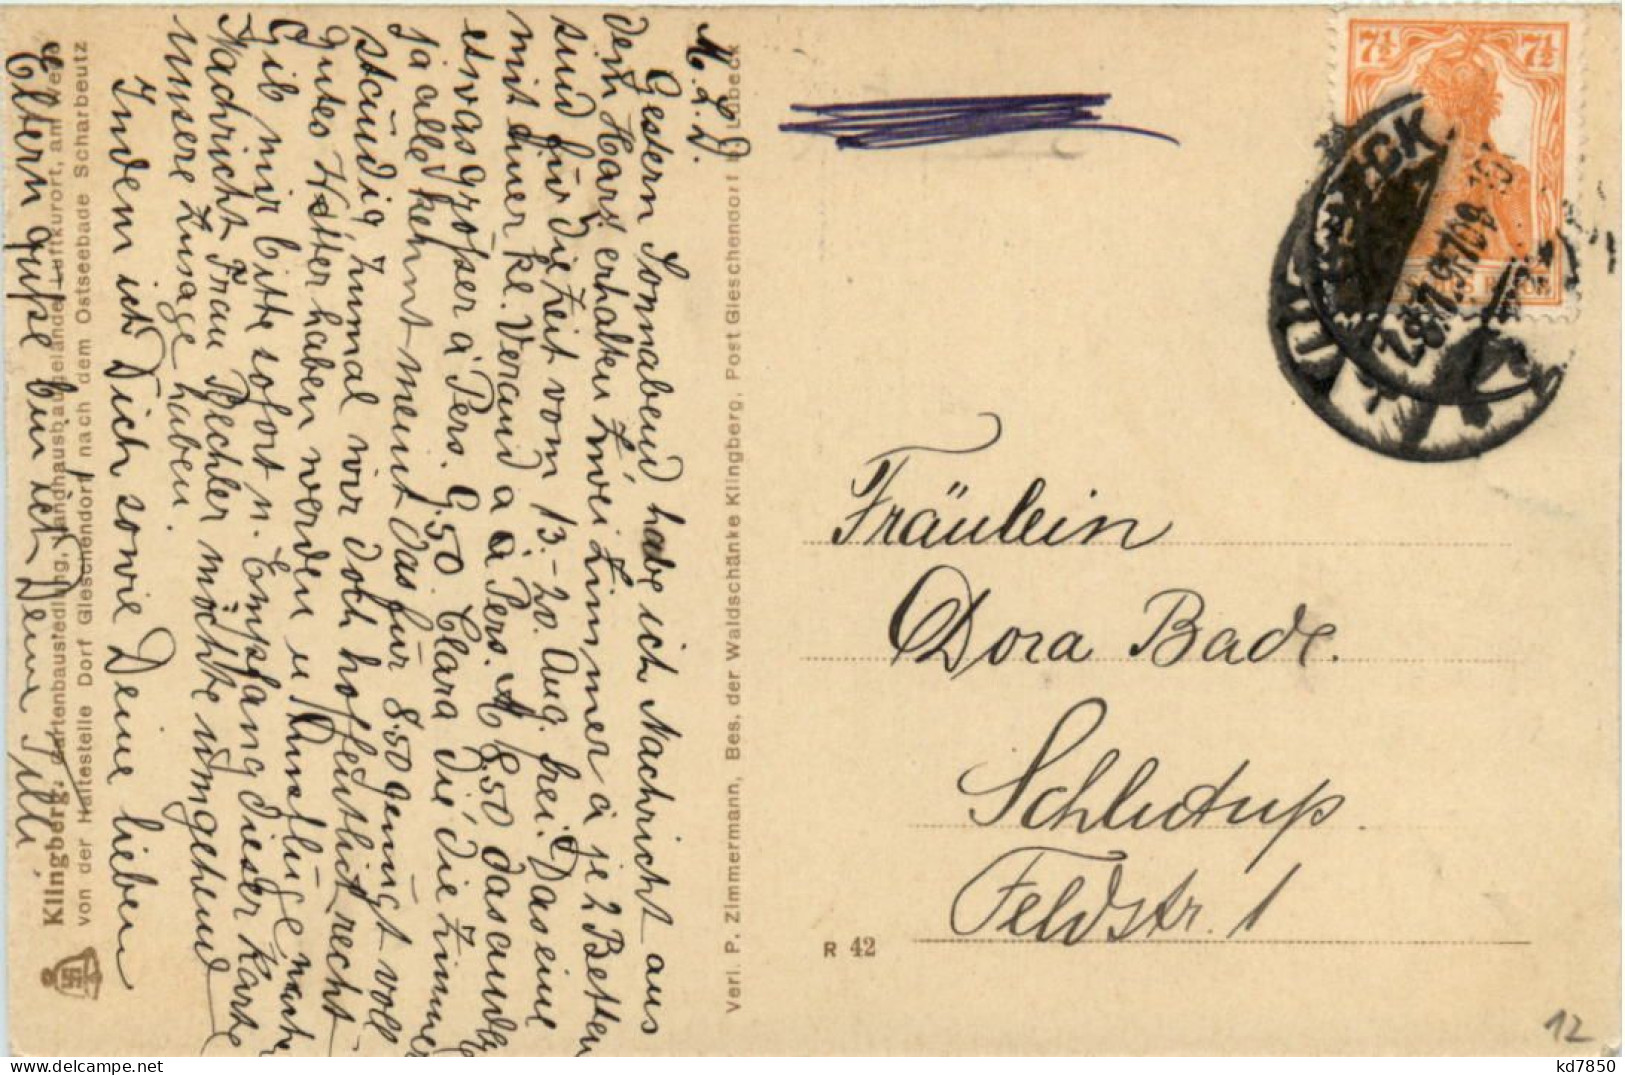 M. l. D.
Gestern Sonnabend habe ich Nachricht aus
dem Harz erhalten. Zwei Zimmer a je 2 Betten
sind für die Zeit vom 13.-20. Aug. frei. Das eine
mit einer kl. Verand a à Pers. M 8.50 das andre
etwas grösser à Pers. 9.50. Clara die die Zimmer
ja alle kennt meint das für 8.50 genügt voll
ständig, zumal wir doch hoffentlich recht
gutes Wetter haben werden u Ausflüge machen
Gib mir bitte sofort n. Empfang dieser Karte
Nachricht, Frau Bechler möchte umgehend
unsere Zusage haben.
Indem ich Dich sowie Deine lieben
Eltern grüße bin ich Deine Silli
Klingberg, Gartenbausiedlung, Landhausbaugelände, Luftkurort, am Wege
von der Haltestelle Dorf Gleschendorf nach dem Ostseebade Scharbeutz
Verl. P. Zimmermann, Bes. der Waldschänke Klingberg, Post Gleschendorf b. Lübeck
7½ 7½
Fräulein
Dora Bade.
Schlutup.
Feldstr. 1
R 42
12
kd7850